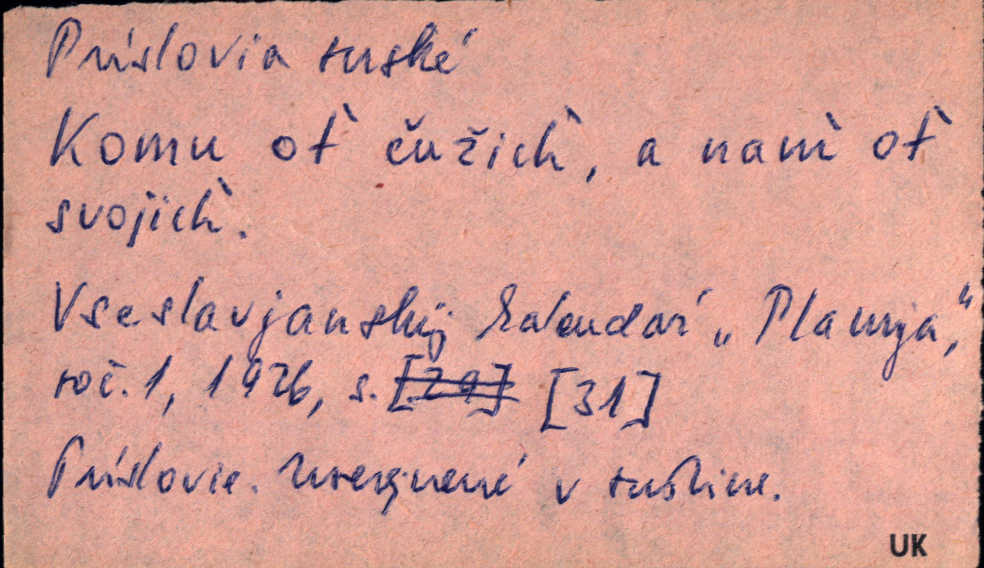 Príslovia ruské
Komu ot̀ čužich̀, a nam̀ ot̀
svojich̀.
Vseslavjanskij kalendaŕ „Plamja",
roč. 1, 1926, s. [29] [31]
Príslovie. Uverejnené v ruštine.
UK